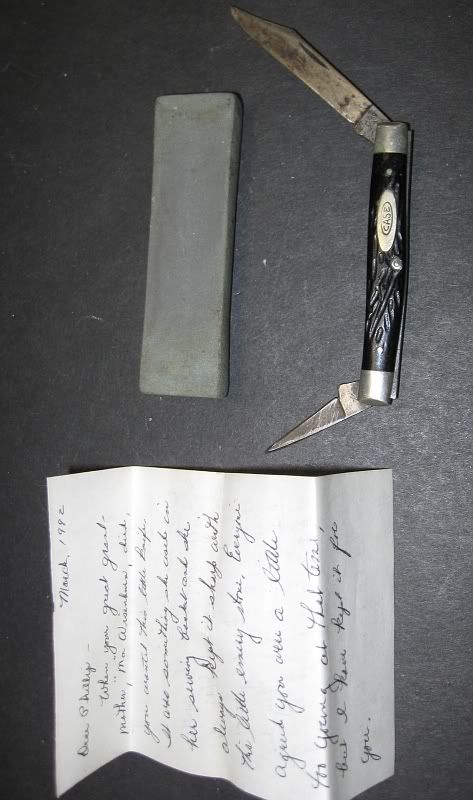 CASE
March, 1982
Dear Philly -
When your great grand-
mother, "Mom" died,
you wanted this little knife.
It was something she used in
her sewing basket and she
always kept it sharp with
the little emery stone. Everyone
agreed you were a little
too young at that time,
but I have kept it for
you.